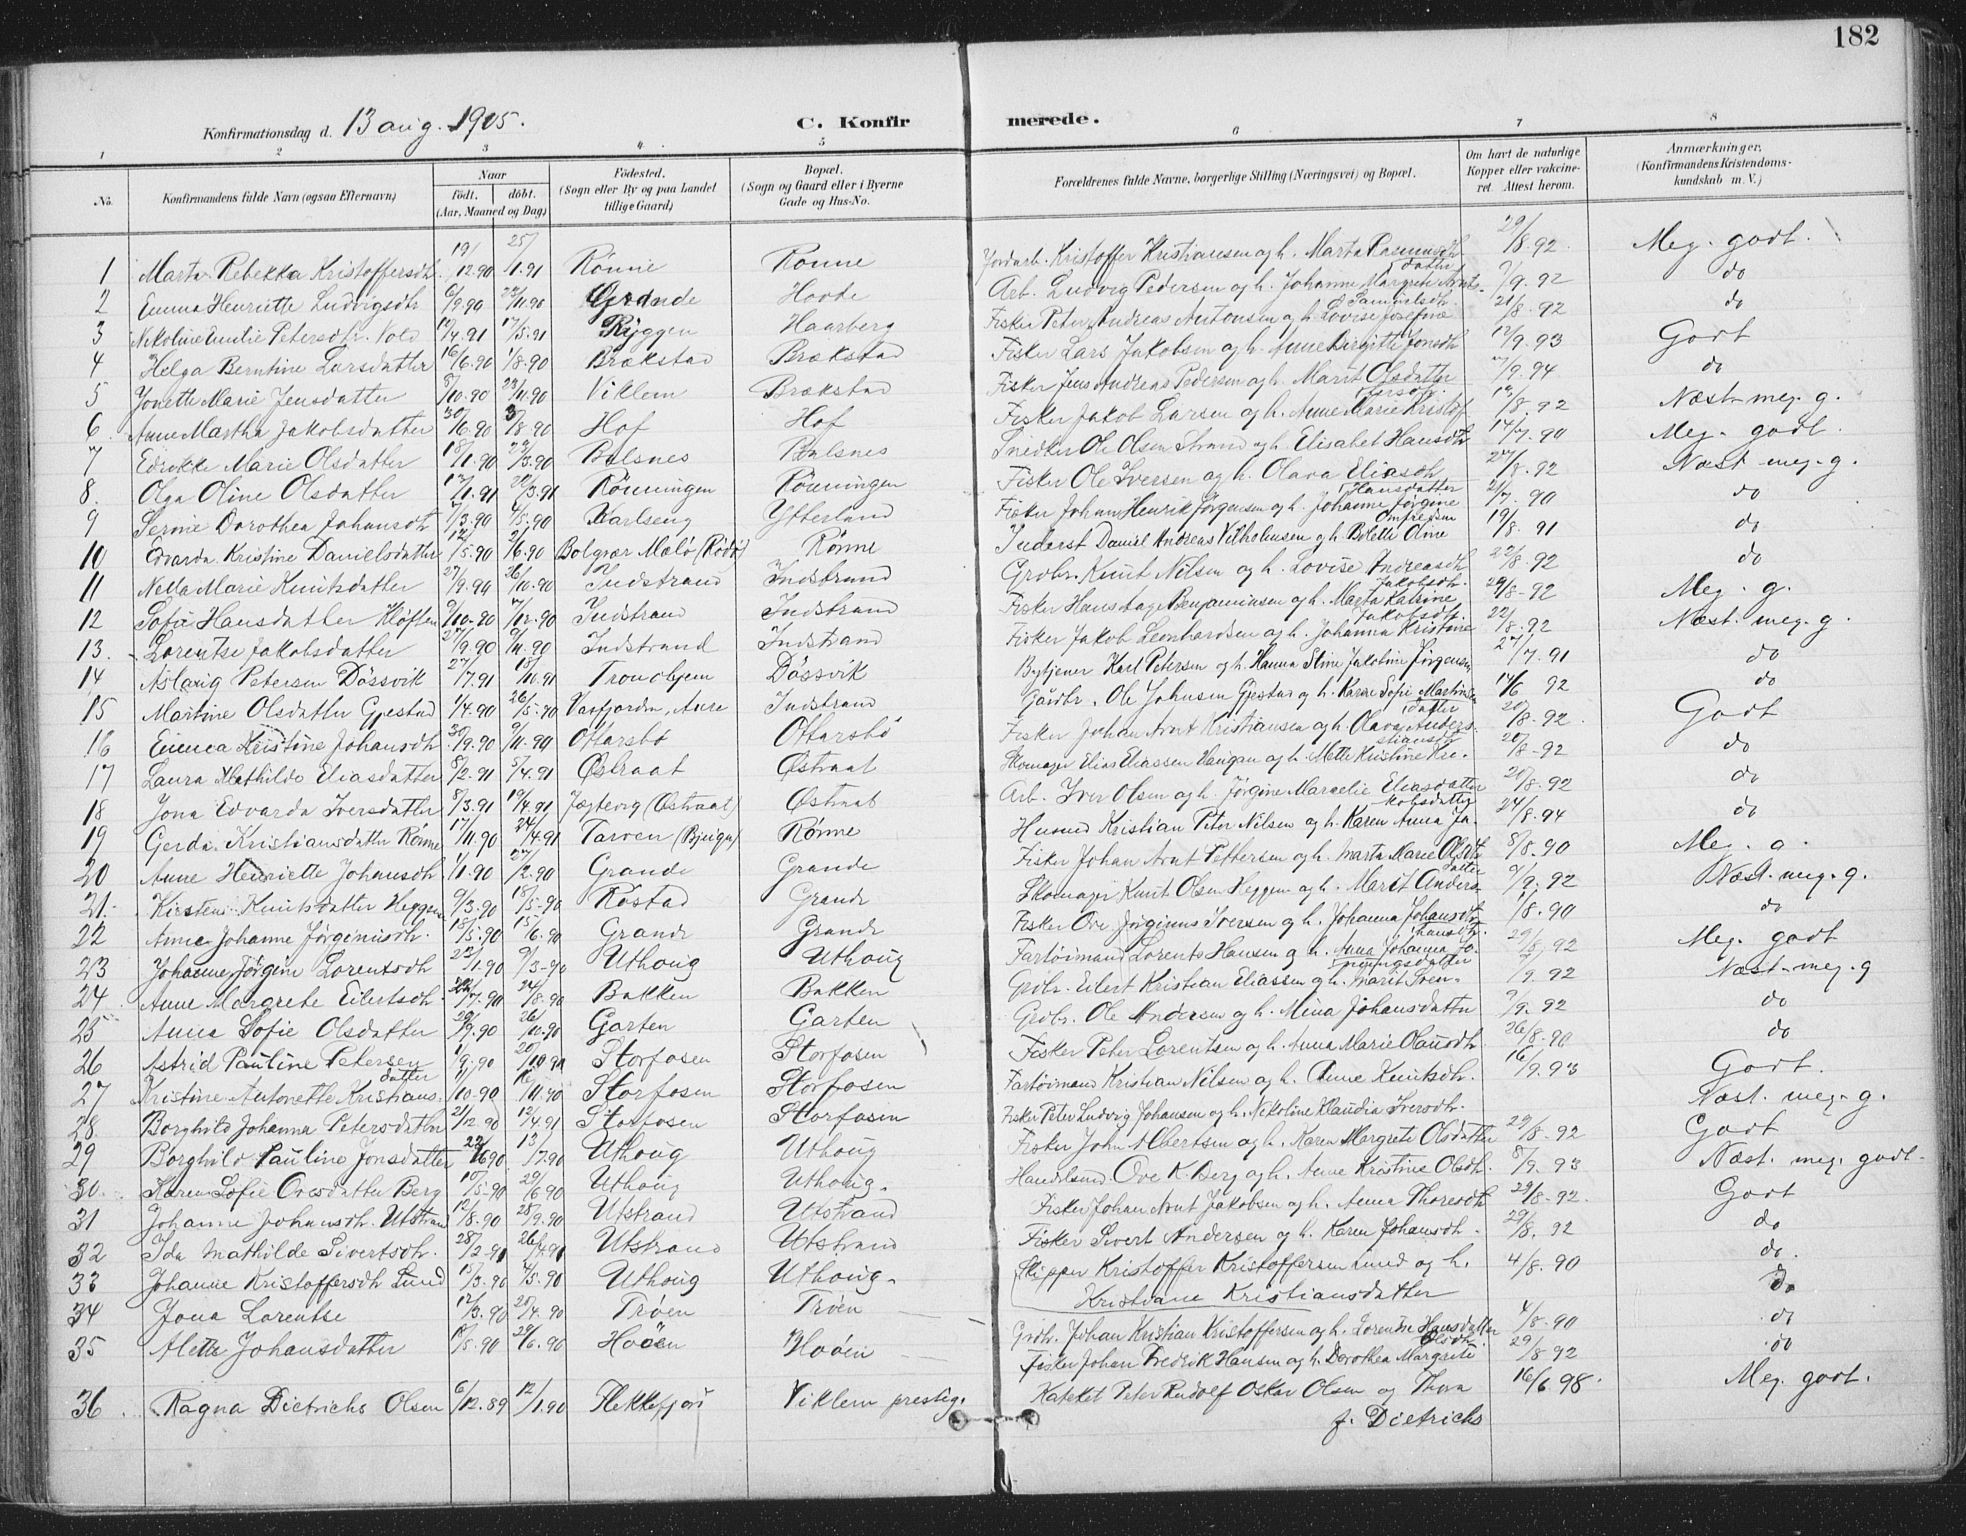 182
Konfirmationsdag d. 13 aug. 1905. C. Konfirmerede.
1 2 3 4 5 6 7 8
No. Konfirmandens fulde Navn (ogsaa Efternavn) Naar født. døbt. (Aar, Maaned og Dag) Födested. (Sogn eller By og paa Landet tillige Gaard) Bopæl. (Sogn og Gaard eller i Byerne Gade og Hus-No. Forældrenes fulde Navne, borgerlige Stilling (Næringsvei) og Bopæl. Om havt de naturlige Kopper eller vakcineret. Attest herom. Anmærkninger. (Konfirmandens Kristendomskundskab m. V.)
1 Marta Rebekka Kristoffersdtr. 19/12.90 25/1.91 Rönne Rönne Jordarb. Kristoffer Kristiansen og h. Marta Rasmusdtr 29/8.92. Meg. godt.
2 Emma Henriette Ludvigsdtr 6/9.90 23/11.90 Grande Hovde Arb. Ludvig Pedersen og h. Johanne Margrete Arntsdatter 7/9.92 do
3 Nikoline Emilie Petersdtr. Vold 12/4.91 17/5.91 Ryggen Haarberg Fisker Peter Andreas Antonsen og h. Lovise Josefine Samuelsdtr. 21/8.92 do
4 Helga Berntine Larsdatter 16/6.90 1/8.90 Brækstad Brækstad Fisker Lars Jakobsen og h. Anne Birgitte Jonsdtr 12/9.93 Godt
5 Jonette Marie Jensdatter 8/10.90 23/11.90 Viklem Brækstad Fisker Jens Andreas Pedersen og h. Marit Olsdatter 7/9.94 do
6. Anne Martha Jakobsdatter 30/6.90 3/8.90 Hof Hof Fisker Jakob Larsen og h. Anne Marie Kristofersdtr. /8.92 Næst meg. g.
7 Edvikke Marie Olsdatter 18/1.90 23/3.90 Balsnes Balsnes Snedker Ole Olsen Strand og h. Elisabet Hansdtr 14/7.90 Meg. godt.
8. Olga Oline Olsdatter 17/1.91 20/3.91 Rönningen Rönningen Fisker Ole Iversen og h. Olava Eliasdtr 27/8.92 Næst meg. g.
9 Dorothea Johansdtr 7/3.90 4/5.90 Karlseng Ytterland Fisker Johan Henrik Jörgensen og h. Johanne Jörgine Hansdatter 21/7.90 do
10 Edvarda Kristine Danielsdatter 12/5.90 2/6.90 Bolgvær Melö (Rödö) Rönne Inderst Daniel Andreas Vilhelmsen og h. Bolette Oline 19/8 91 do
11 Nella Marie Knutsdatter 27/9.90 26/10.90 Indstrand Indstrand Grdbr. Knut Nilsen og h. Lovise Andreasdtr 22/8.92 do
12 Sofie Hansdatter Kløften 9/10.90 7/12.90 Indstrand Indstrand Fisker Hans Hage Benjaminsen og h. Marta Katrine Jakobsdtr. 29/8-92 Meg. g.
13. Lorentse Jakobsdatter 27/9.90 9/11.90 Indstrand Indstrand Fisker Jakob Leonhardsen og h. Johanna Kristine Jakobsdtr. 22/8.92 Næst. meg. g.
14 Aslaug Petersen Dössvik 27/7.91 18/10.91 Trondhjem Dössvik Bytjener Karl Petersen og h. Hanna Stine Jakobine Jörgensen 27/7.91 do
15 Martine Olsdatter Gjestad 1/4.90 26/5.90 Aure Indstrand Gaardbr. Ole Johnsen Gjestad og h. Karen Sofie Martinsdatter 14/6 92 do
16 Emma Kristine Johansdtr 30/9.90 9/11.90 Ottarsbö Ottarsbö Fisker Johan Arnt Kristiansen og h. Olava Andersdatter 20/8.92. Godt
17 Laura Mathilde Eliasdatter 8/2.91 5/4.91 Østraat Østraat Skomager Elias Eliassen Haugan og h. Mette Kristine Kristiansdtr 20/8-92 do
18 Jona Edvarda Iversdatter 8/3.91 19/4.91 Jægtevig (Østraat) Østraat Arb. Iver Olsen og h. Jørgine Marcelie Eliasdatter 20/8.92 do
19 Gerda Kristiansdatter Rönne 17/11.90 24/4.91 Tarven (Bjugn) Rönne Husmd Kristian Peter Nilsen og h. Karen Anna Jakobsdatter 24/8.94 do
20 Anne Henriette Johansdtr. 1/1.90 27/2.90 Grande Grande Fisker Johan Arnt Pettersen og h. Marta Marie Olsdtr 8/8.90 Meg. g.
21. Kirsten Knutsdatter Heggen 9/3.90 18/5-90 Röstad Grande Skomager Knut Olsen Heggen og h. Marit Andersdatter 9/9.92 Næst. meg. g.
22 Anne Johanne Jörginusdtr. 18/5.90 15/6.90 Grande Grande Fisker Ove Jörginus Iversen og h. Johanna Johansdtr. 1/8.90 do
23 Johanne Jörgine Lorentsdtr 22/1.90 9/3-90 Uthoug Uthoug Fartöimand Lorents Hansen og h. Anna Johanna Johansdtr. 29/8.92 Meg. godt
24. Anne Margrete Eilertsdtr. 22/7.90 24/8.90 Bakken Bakken Grdbr. Eilert Kristian Eliassen og h. Marit Svenningsdatter 7/9.92 Næst. meg. g
25 Anna Sofie Olsdatter 20/9.90 26/10.90 Garten Garten Grdbr. Ole Andersen og h. Mina Johansdatter 9/9.92 do
26 Astrid Pauline Petersen 1/9.90 20/10.90 Storfosen Storfosen Fisker Peter Lorentsen og h. Anna Marie Olausdtr. 26/8-90 do
27 Kristine Antonette Kristiansdatter 11/10.90 16/11.90 Storfosen Storfosen Fartöimand Kristian Nilsen og h. Anne Knutsdtr. 16/9.93 Godt.
28. Borghild Johanna Petersdatter 21/12.90 12/4.91 Storfosen Storfosen Fisker Peter Ludvig Johansen og h. Nikoline Klaudia Iversdtr. Næst. meg. g.
29 Borghild Pauline Jonsdatter 22/6.90 13/7.90 Uthoug Uthoug Fisker John Albertsen og h. Karen Margrete Olsdatter 29/8-92 Godt
30. Karen Sofie Ovesdatter Berg 10/5-90 29/6.90 Uthoug Uthoug. Handelsmd. Ove K. Berg og h. Anne Kristine Olsdtr. 8/9.93 Næst. meg. godt.
31 Johanne Johansdtr. Utstrand 12/8.90 28/9.90 Utstrand Utstrand Fisker Johan Arnt Jakobsen og h. Anna Thoresdtr 29/8-92. Godt
32 Ida Mathilde Sivertsdtr. 28/2.91 26/4.91 Utstrand Utstrand Fisker Sivert Andersen og h. Karen Johansdtr. 29/8.92 do
33 Johanne Kristoffersdtr Lund 15/3.90 4/5.90 Uthoug Uthoug. Skipper Kristoffer Kristoffersen Lund og h. Kristiane Kristiansdatter 4/8.90 do.
34 Jona Lorentse 12/3.90 20/4.90 Trøen Trøen Grdbr. Johan Kristian Kristoffersen og h. Lorentse Hansdatter 4/8-90 do
35 Aletta Johansdatter /5.90 29/6.90 Hoöen Hoöen Fisker Johan Fredrik Hansen og h. Dorothea Margrete Olsdtr. 29/8 92 do
36. Ragna Dietrichs Olsen 6/12.89 12/1.90 Flekkefjord Viklem prestig. Kateket Peter Rudolf Oskar Olsen og Thora f. Dietrichs 16/6 98. Meg. godt.